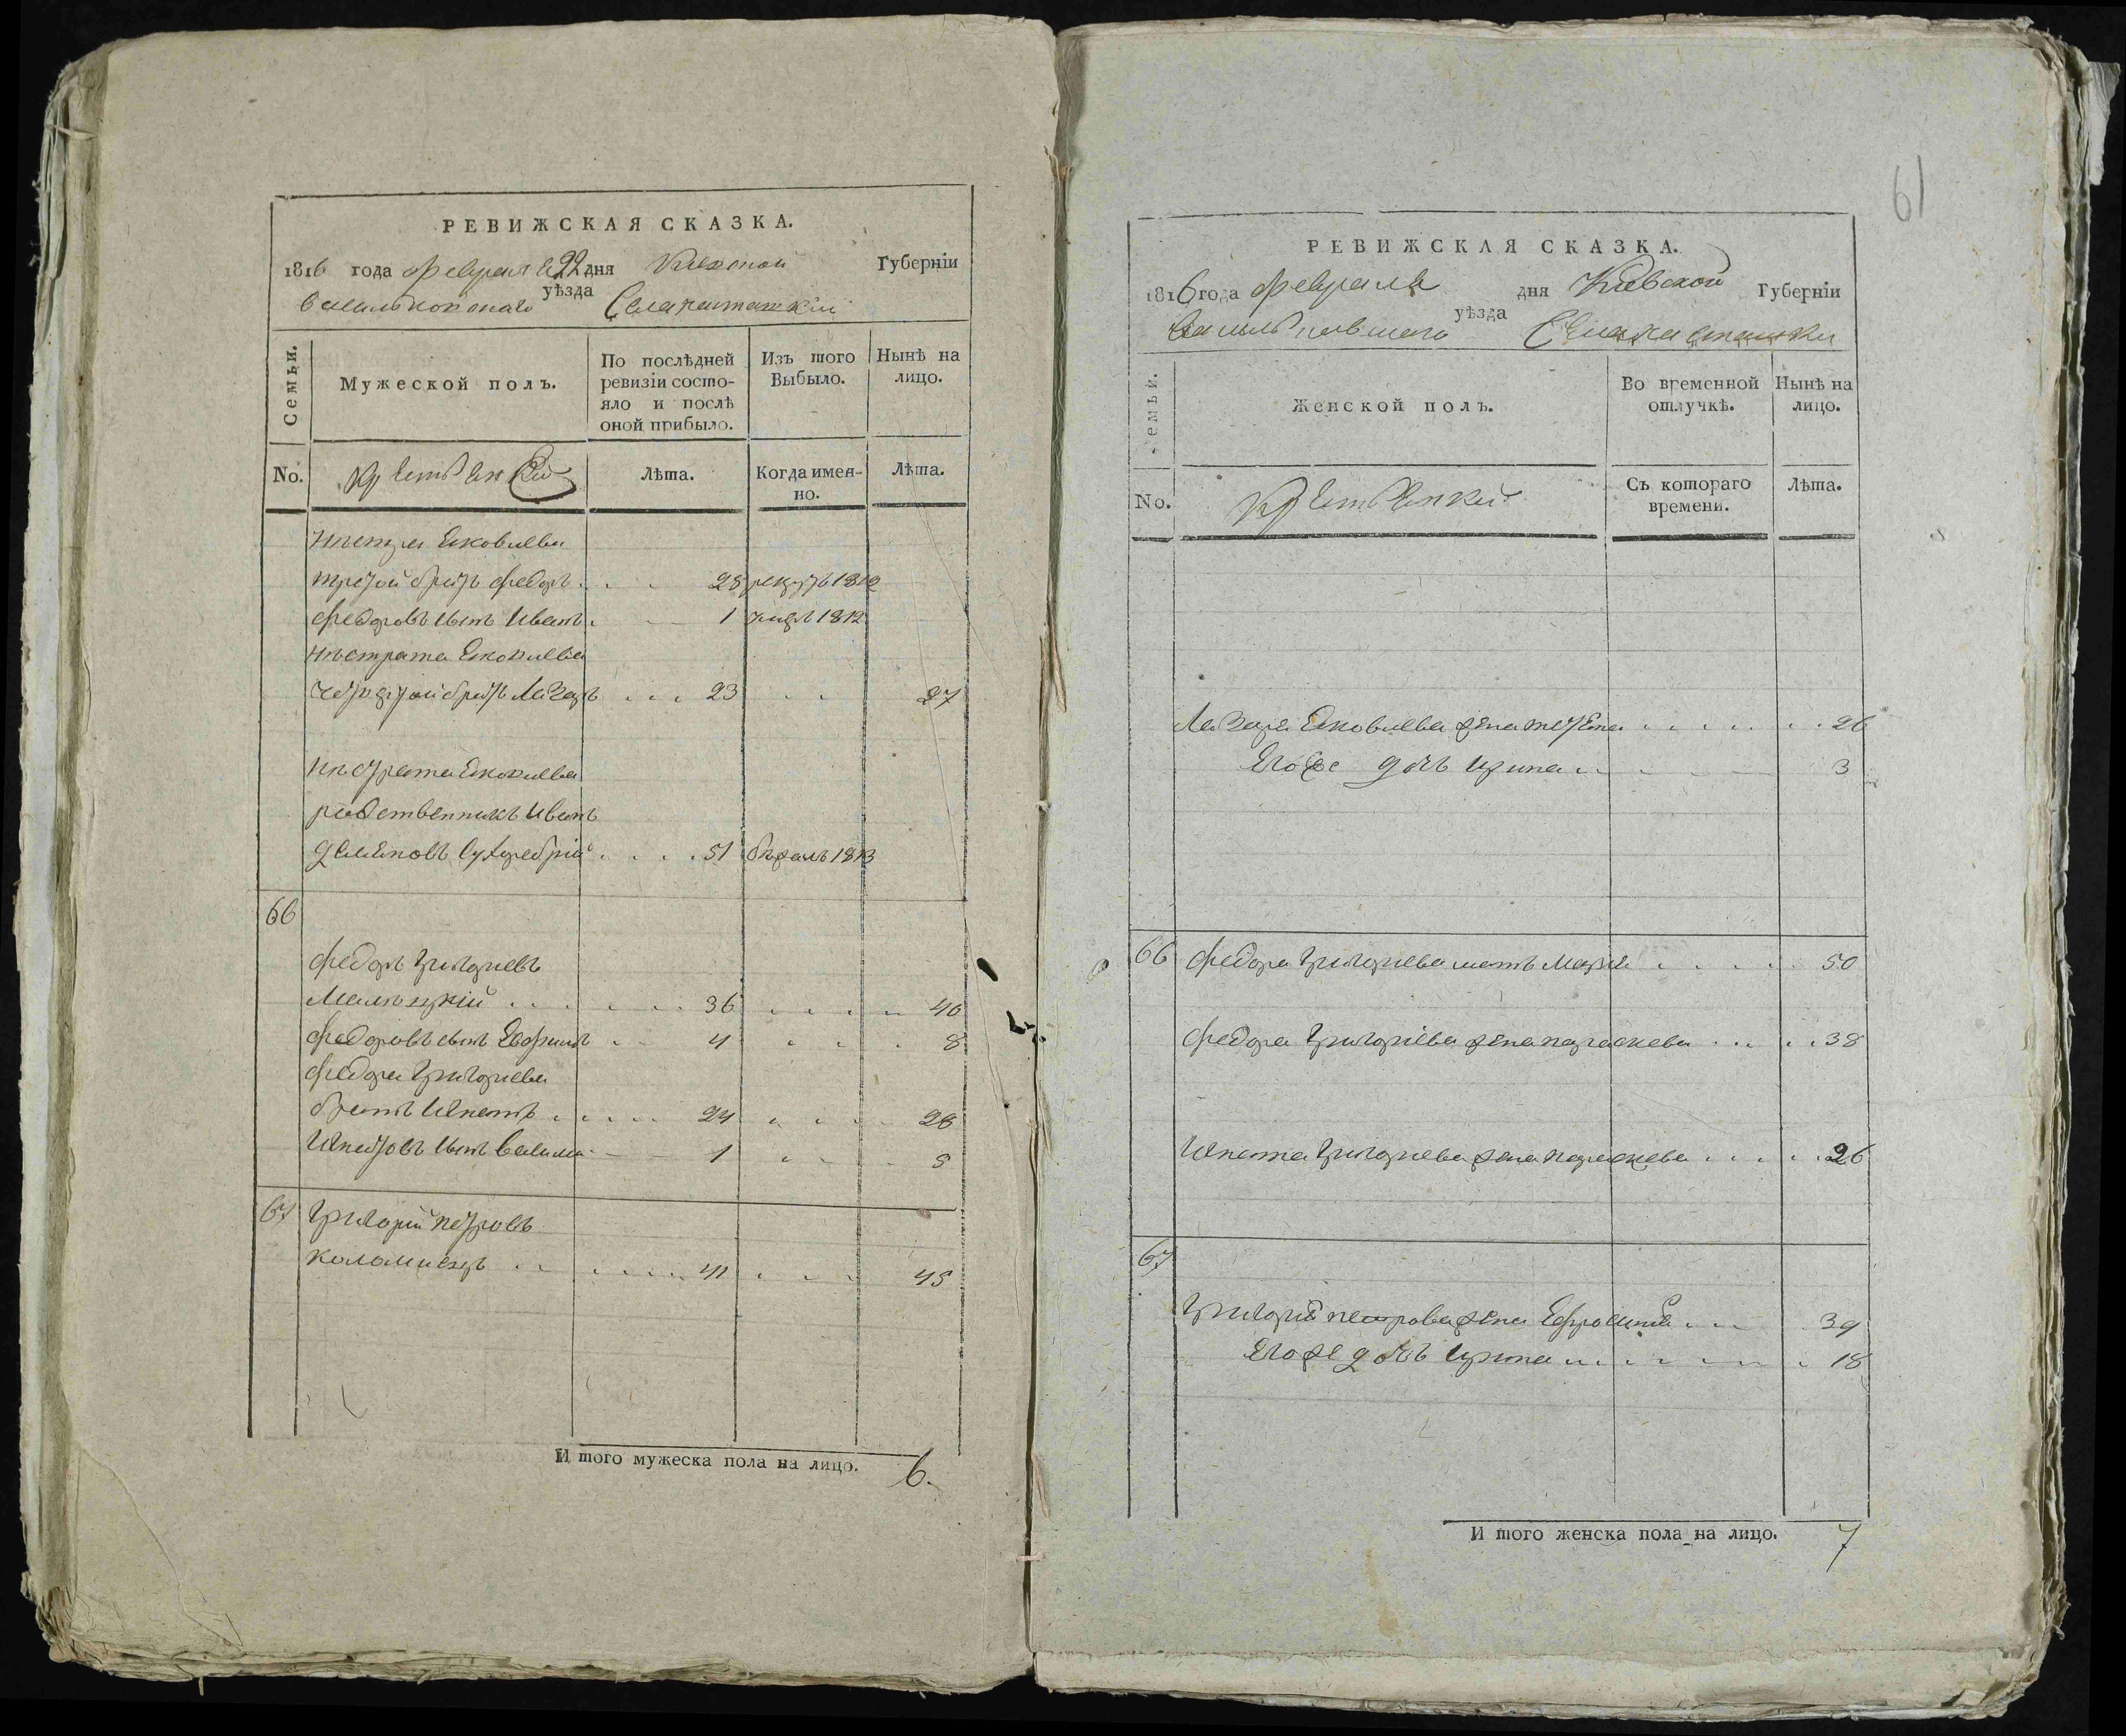 РЕВИЖСКАЯ СКАЗКА.
1816 года февраля 22 дня Киевской Губерніи
васильковскаго уѣзда Села
Семьи.
Мужеской полъ.
По послѣдней ревизіи состояло и послѣ оной прибыло.
Изъ того Выбыло.
Нынѣ на лицо.
No.
Лѣта.
Когда именно.
Лѣта.
Яковлева
третой братъ федоръ 28 рекрутъ 1812
федоровъ сынъ Иванъ 1 1812
Яковлева
четвертой братъ Лазарь 23 27
Яковлева
родственникъ Иванъ
51 1813
66
федоръ григориевъ
36 40
федоровъ сынъ Ефимъ 4 8
федора григориева
братъ Игнатъ 24 28
Игнатовъ сынъ василий 1 5
67 григорий петровъ
коломиецъ 41 45
И того мужеска пола на лицо. 6.
61
РЕВИЖСКАЯ СКАЗКА.
1816 года февраля дня Киевской Губерніи
васильковскаго уѣзда Села
Семьи.
Женской полъ.
Во временной отлучкѣ.
Нынѣ на лицо.
No.
Съ котораго времени.
Лѣта.
Лазаря Яковлева жена 26
Его же дочь Ирина 3
66 федора григориева мать Мария 50
федора григориева жена параскева 38
Игната григориева жена параскева 26
67
григория петрова жена Ефросиния 39
Его же дочь Ирина 18
И того женска пола на лицо. 7